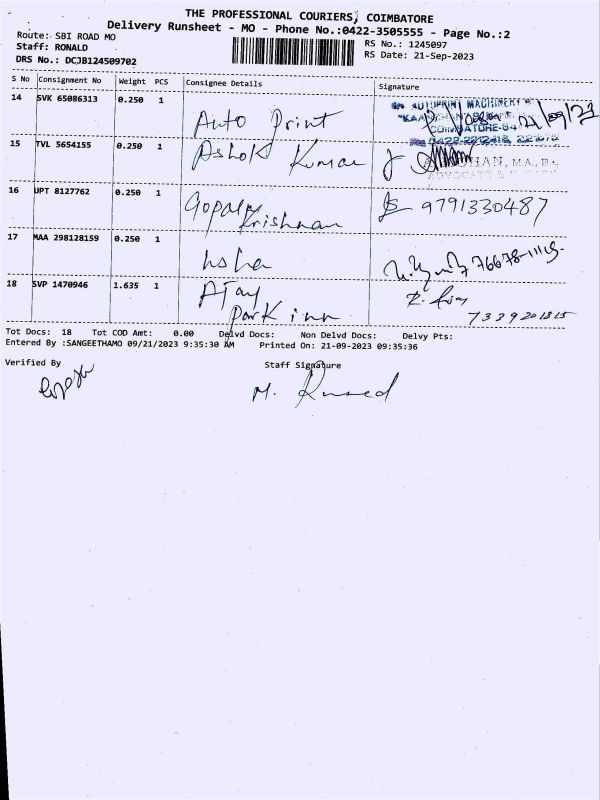 THE PROFESSIONAL COURIERS, COIMBATORE
Delivery Runsheet - MO - Phone No.:0422-3505555 - Page No.:2
Route: SBI ROAD MO
RS No.: 1245097
Staff: RONALD
RS Date: 21-Sep-2023
DRS No.: DCJB124509702
S No Consignment No Weight PCS Consignee Details Signature
14 SVK 65086313 0.250 1 Auto Print
AUTOPRINT MACHINERY
COIMBATORE-641
15 TVL 5654155 0.250 1 Ashok Kumar
M.A., B.L.
ADVOCATE &
16 UPT 8127762 0.250 1 Gopala 9791330487
Krishnan
17 MAA 298128159 0.250 1 Usha
18 SVP 1470946 1.635 1 Ajay
Park inn 7339201815
Tot Docs: 18 Tot COD Amt: 0.00 Delvd Docs: Non Delvd Docs: Delvy Pts:
Entered By :SANGEETHAMO 09/21/2023 9:35:30 AM Printed On: 21-09-2023 09:35:36
Verified By Staff Signature